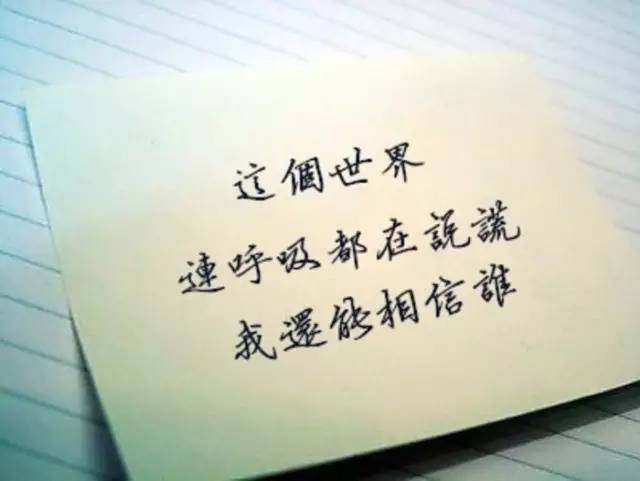 這個世界
連呼吸都在説謊
我還能相信誰